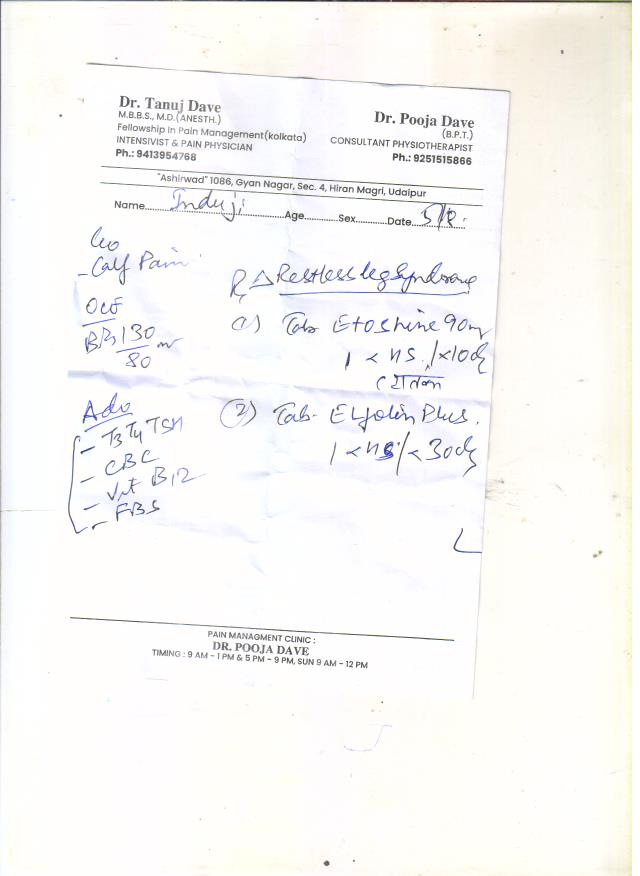 Dr. Tanuj Dave
M.B.B.S., M.D.(ANESTH.)
Fellowship In Pain Management(kolkata)
INTENSIVIST & PAIN PHYSICIAN
Ph.: 9413954768
Dr. Pooja Dave
(B.P.T.)
CONSULTANT PHYSIOTHERAPIST
Ph.: 9251515866
"Ashirwad" 1086, Gyan Nagar, Sec. 4, Hiran Magri, Udaipur
Name Induji Age Sex Date
c/o
- Calf Pain
O/E
BP 130
80
Adv
- T3 T4 TSH
- CBC
- Vit B12
- FBS
Rx △ Restless leg Syndrome
1) Tab Etoshine 90
1 < HS / x 10d
2) Tab- Plus
1 < HS / < 30d
PAIN MANAGMENT CLINIC :
DR. POOJA DAVE
TIMING : 9 AM - 1 PM & 5 PM - 9 PM, SUN 9 AM - 12 PM